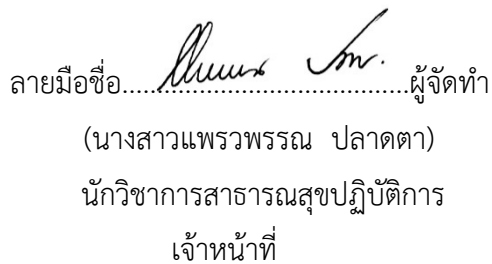 ลายมือชื่อ.......................................ผู้จัดทำ
(นางสาวแพรวพรรณ ปลาดตา)
นักวิชาการสาธารณสุขปฏิบัติการ
เจ้าหน้าที่